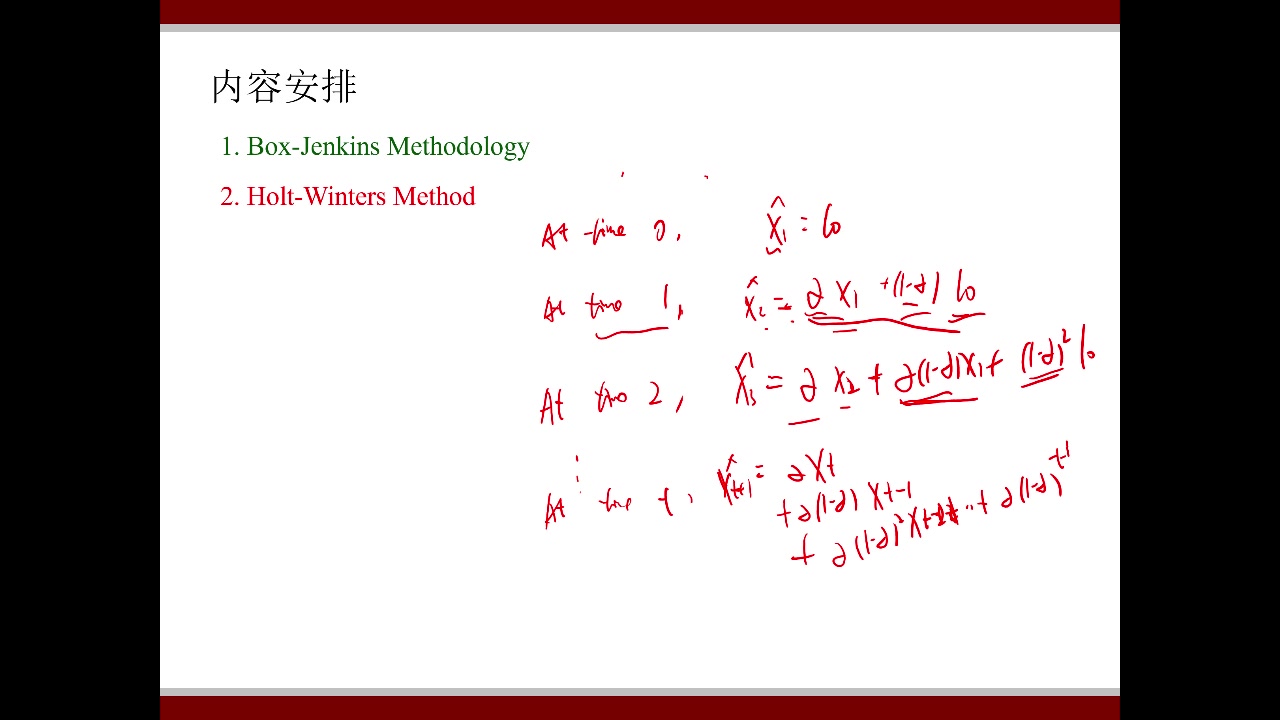 内容安排
1. Box-Jenkins Methodology
2. Holt-Winters Method
At time 0, x̂₁ = l₀
At time 1, x̂₂ = αx₁ + (1-α) l₀
At time 2, x̂₃ = αx₂ + α(1-α)x₁ + (1-α)² l₀
⋮
At time t, x̂ₜ₊₁ = αxₜ
+ α(1-α) xₜ₋₁
+ α(1-α)² xₜ₋₂ ... + α(1-α)ᵗ⁻¹